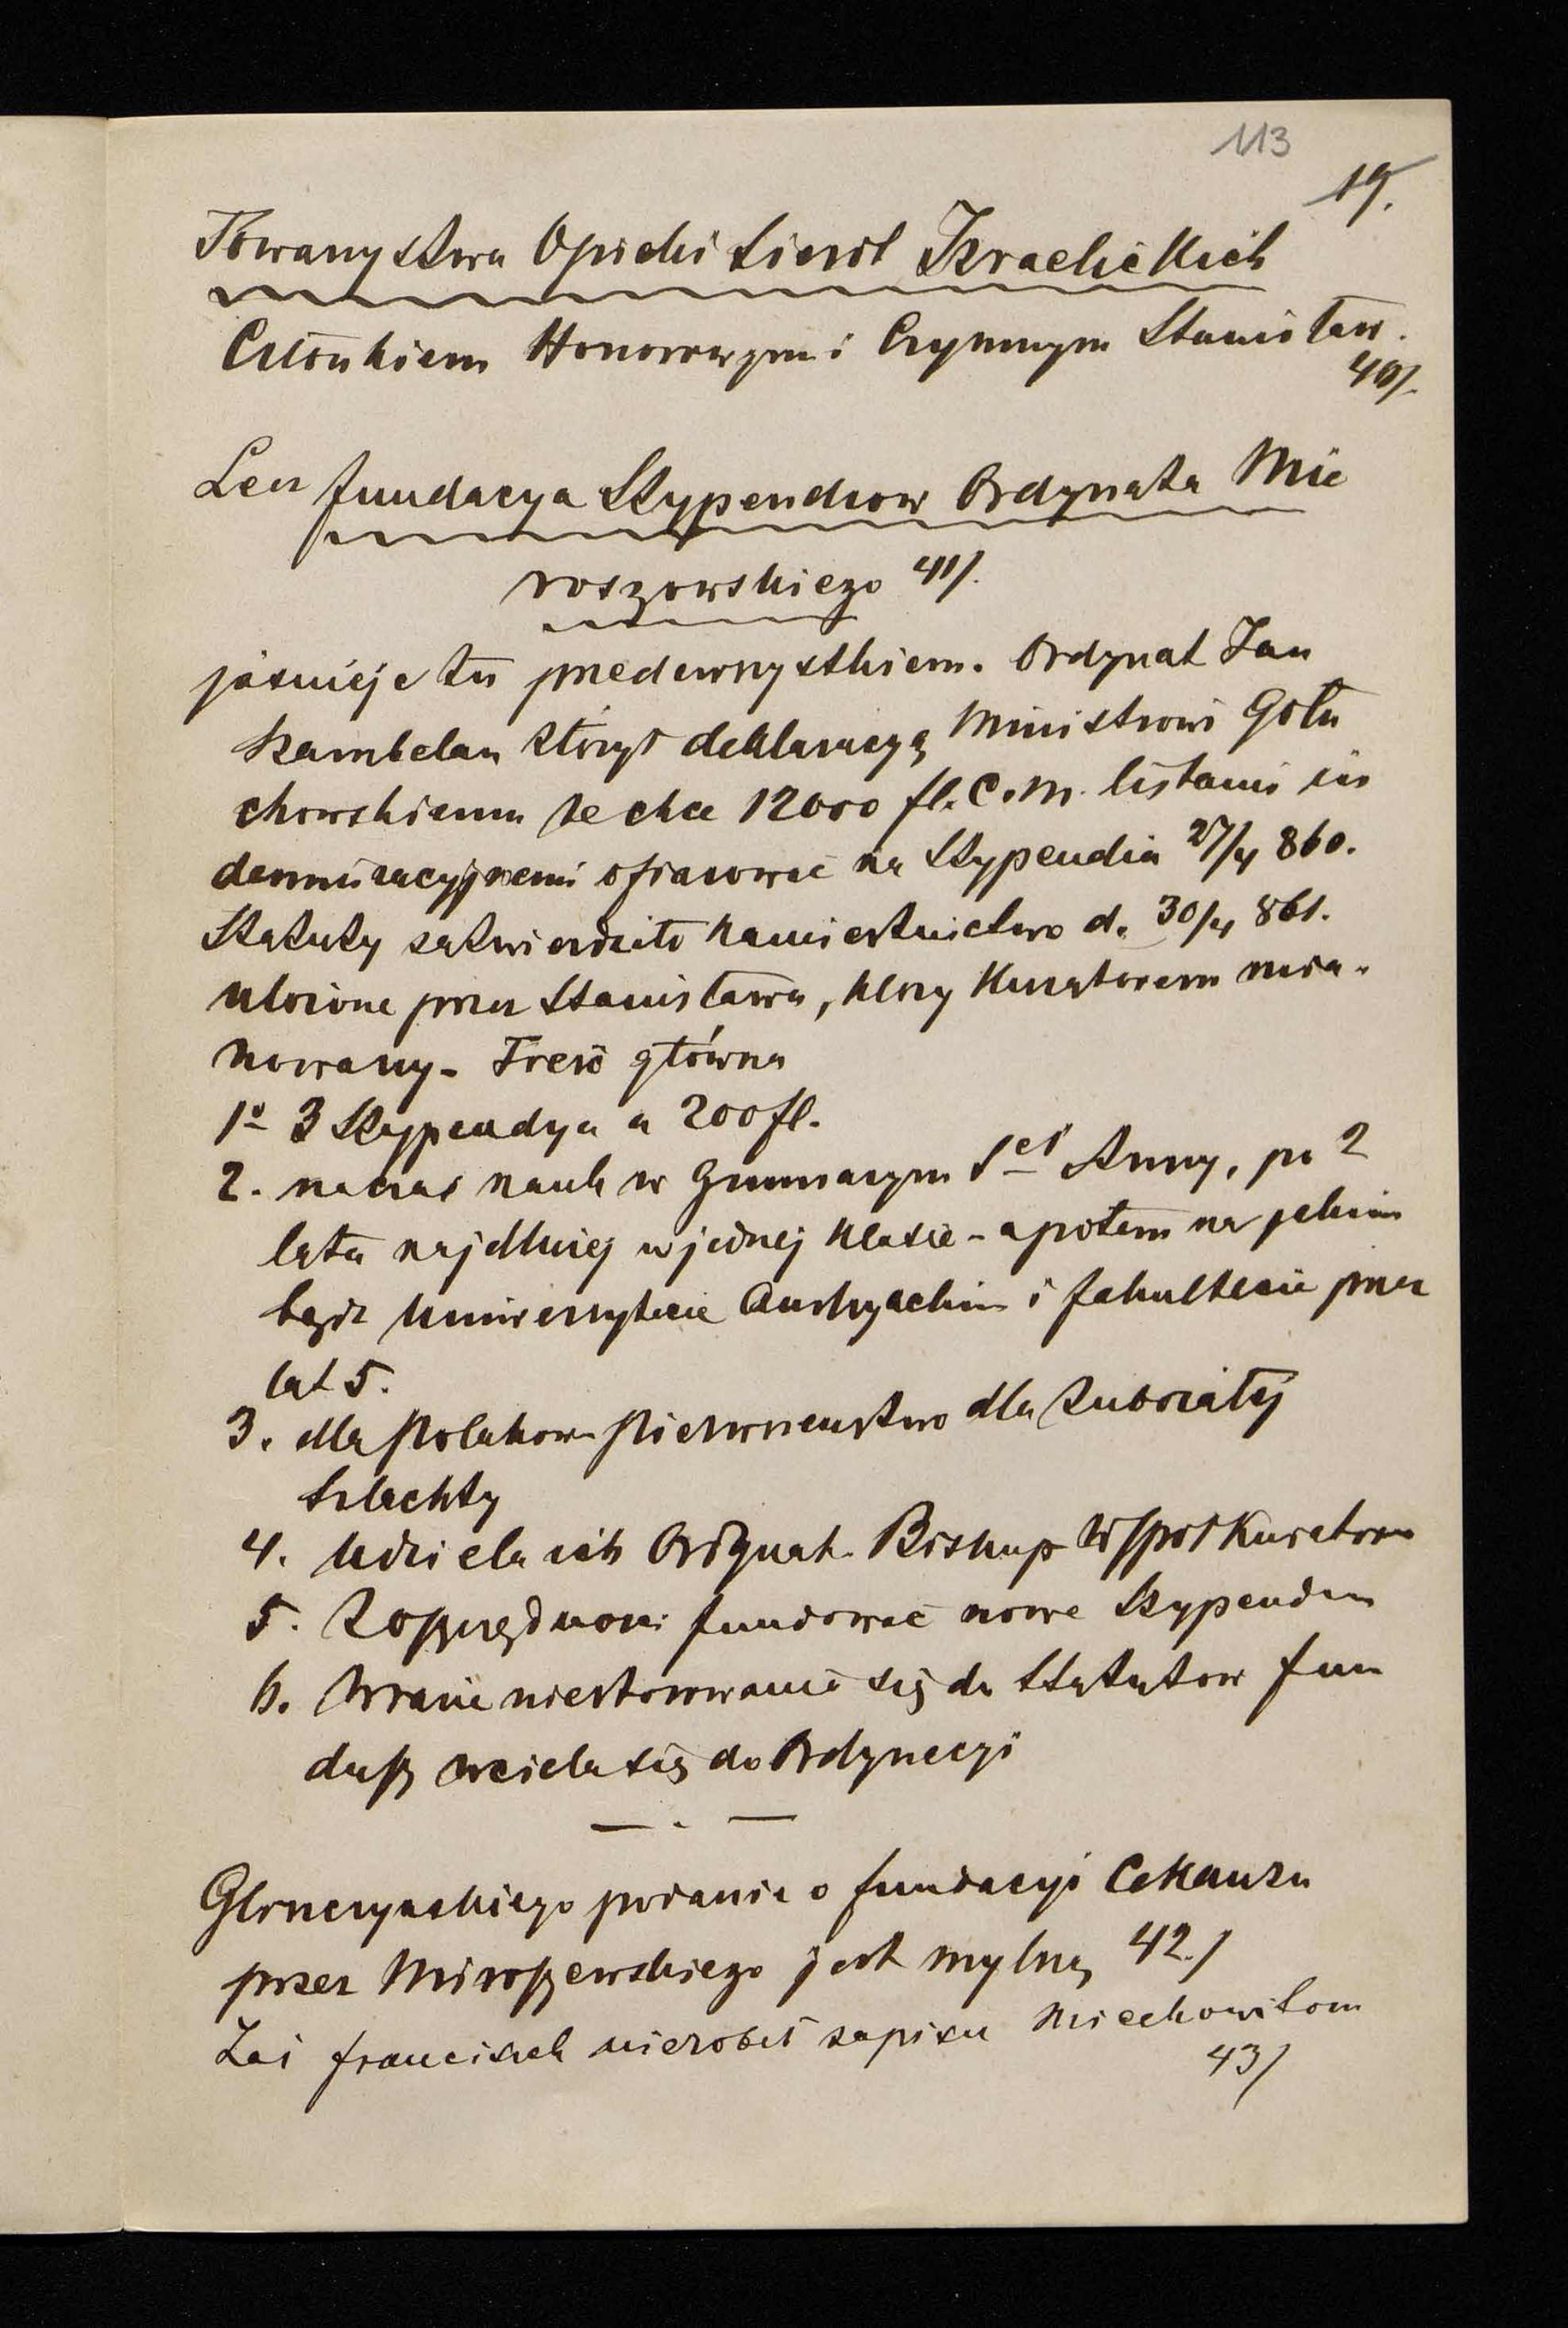 113
19.
Towarzystwa Opieki Sierót Izraelickich
Członkiem Honorowym i Czynnym Stanisław.
40/.
Lecz fundacya Stypendiow Ordynata Mie
roszowskiego 41/.
jaśnieje tu przedewszystkiem. Ordynat Jan
Szambelan złożył deklaracyą Ministrowi Gołu
chowskiemu że chce 12000 fl. C. M. listami in
demnizacyjnemi ofiarować na Stypendia 27/4 860.
Statuty zatwierdziło Namiestnictwo d. 30/4 861.
ułożone przez Stanisława, który Kuratorem mia-
nowany - Treść główna
1º 3 Stypendya a 200 fl.
2. na czas nauk w Gimnazym Sej Anny, po 2
lata najdłużej w jednej klasie - a potem na jakim
bądź Uniwersytecie Austryackim i fakultecie przez
lat 5.
3. dla Polakow - Pierwszeństwo dla zubożałej
Szlachty
4. Udziela ich Ordynat. Biskup Współkuratorem
5. Z oszczędności fundować nowe Stypendium
6. W razie niestosowania się do Statutow fun
dusz wciela się do Ordynacyi
— . —
przez Miroszewskiego jest mylną 42./
Zaś Franciszek nie robił zapisu Miechowitom
43/